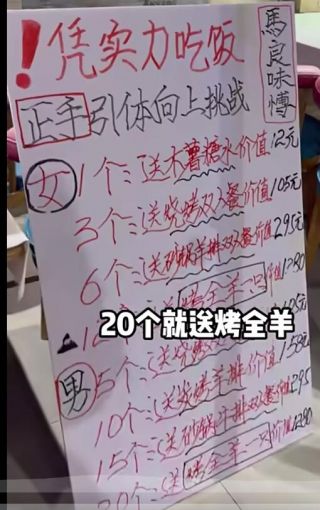 !凭实力吃饭
馬良味博
正手引体向上挑战
女
1个:送木薯糖水价值12元
3个:送烧烤双人餐价值105元
6个:送砂锅羊排双人餐价值295元
送烤全羊一只价值1280
20个就送烤全羊
男
5个:送烧烤双
10个:送炭烤羊排价值158元
15个:送砂锅牛排双人餐价值295
20个:送烤全羊一只价值1280